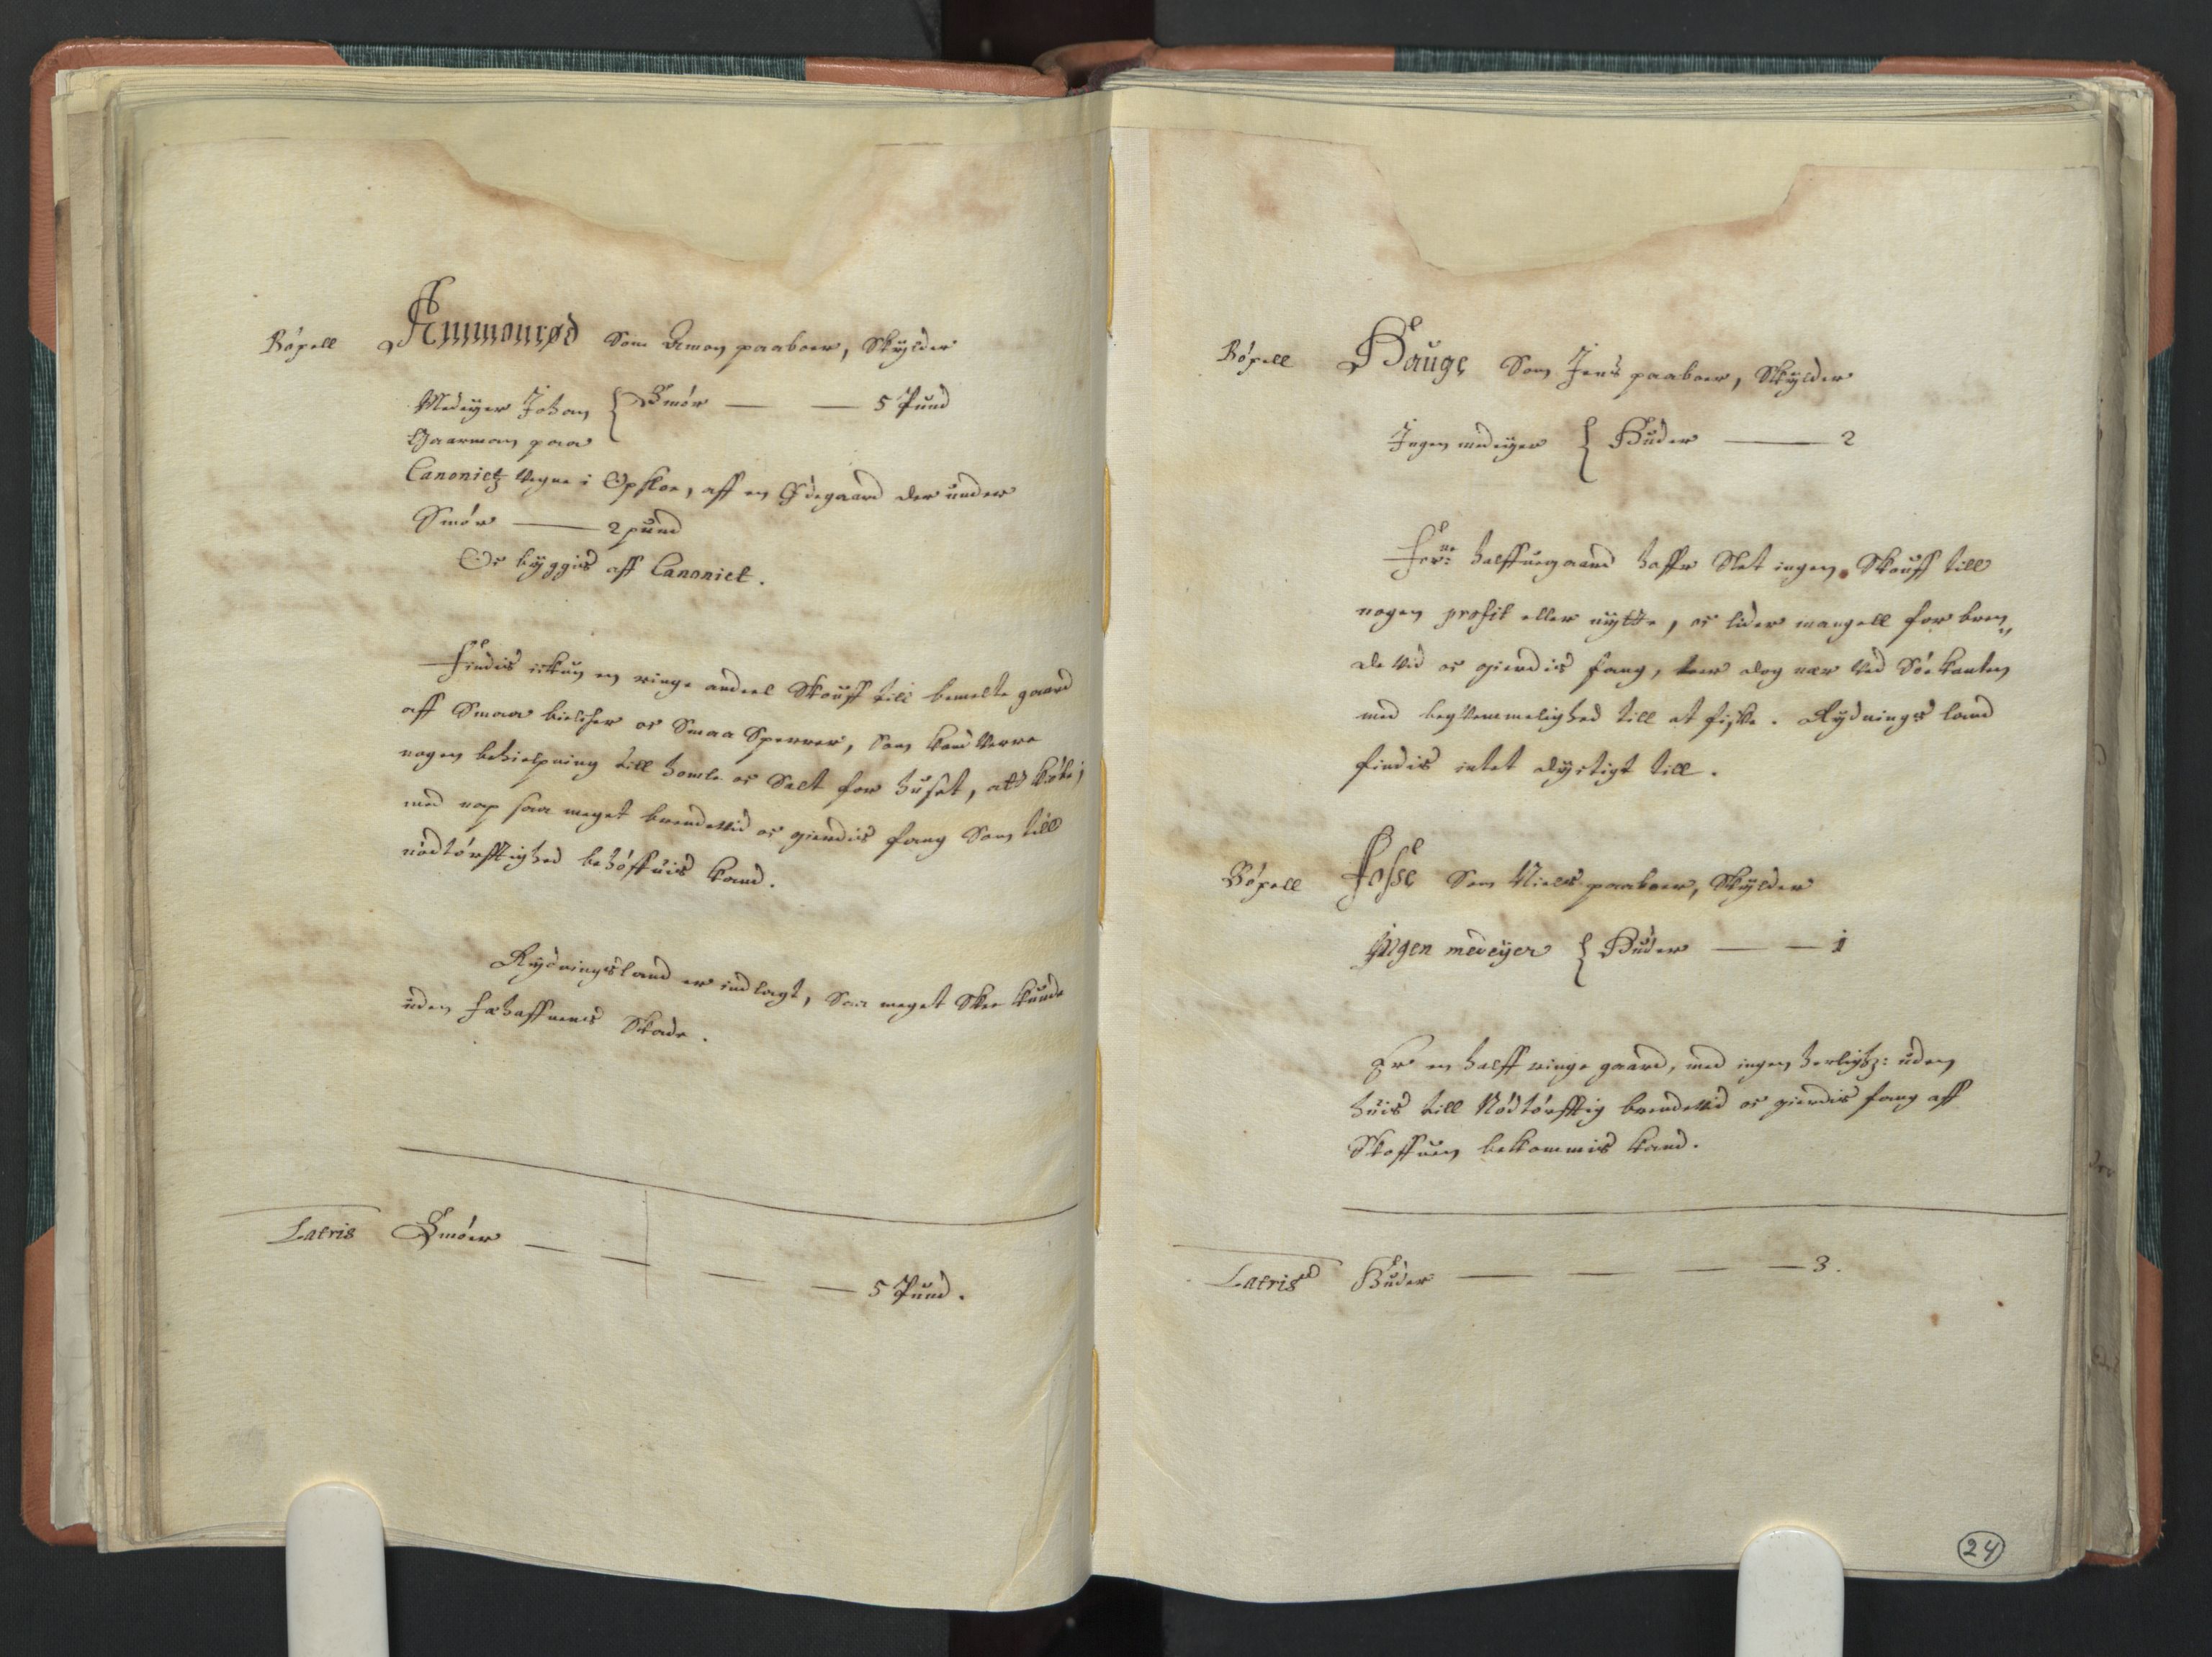 Böxell Ammonrød Som Amon paaboer, Skÿlder
Medeÿer Johan { Smör — — 5 Pund
Gaarman paa
Canonictz vegne i Opsloe, aff en Ødegaard der under
Smör — 2 pund
Oc bÿggis aff Canonict.
Findis ickun en ringe andeel Skouff till bemelte gaard
aff Smaa bielcker oc Smaa Sperrer, Som kand verre
nogen behielpning till homle oc Salt for huset, att kiøbe,
med nap saa meget brendeved oc gierdis fang Som till
nödtörfftighed behöffuis kand.
Rÿdningsland er indlagt, Saa meget Skee kunde
uden fæhaffnens Skade.
Latris Smöer — — — — 5 Pund.
Böxell Hauge Som Jens paaboer, Skÿlder
Ingen medeÿer { Huder — 2
For:ne halffuegaard haffr Slet ingen Skouff till
nogen profit eller nÿtte, oc lider mangell for bren„
de Vid oc gierdis fang, boer dog nær Ved Söekanten
med beqvemmelighed till at fiske. Rÿdnings land
findis intet dÿctigt till.
Böxell Fosse Som Niels paaboer, Skÿlder
Ingen medeÿer { Huder — — 1
Er en halff ringe gaard, med ingen herlighz: uden
huis till Nödtörfftig brendeVid oc gierdis fang aff
Skoffuen bekommis kand.
Latris Huder — — — — 3.
24